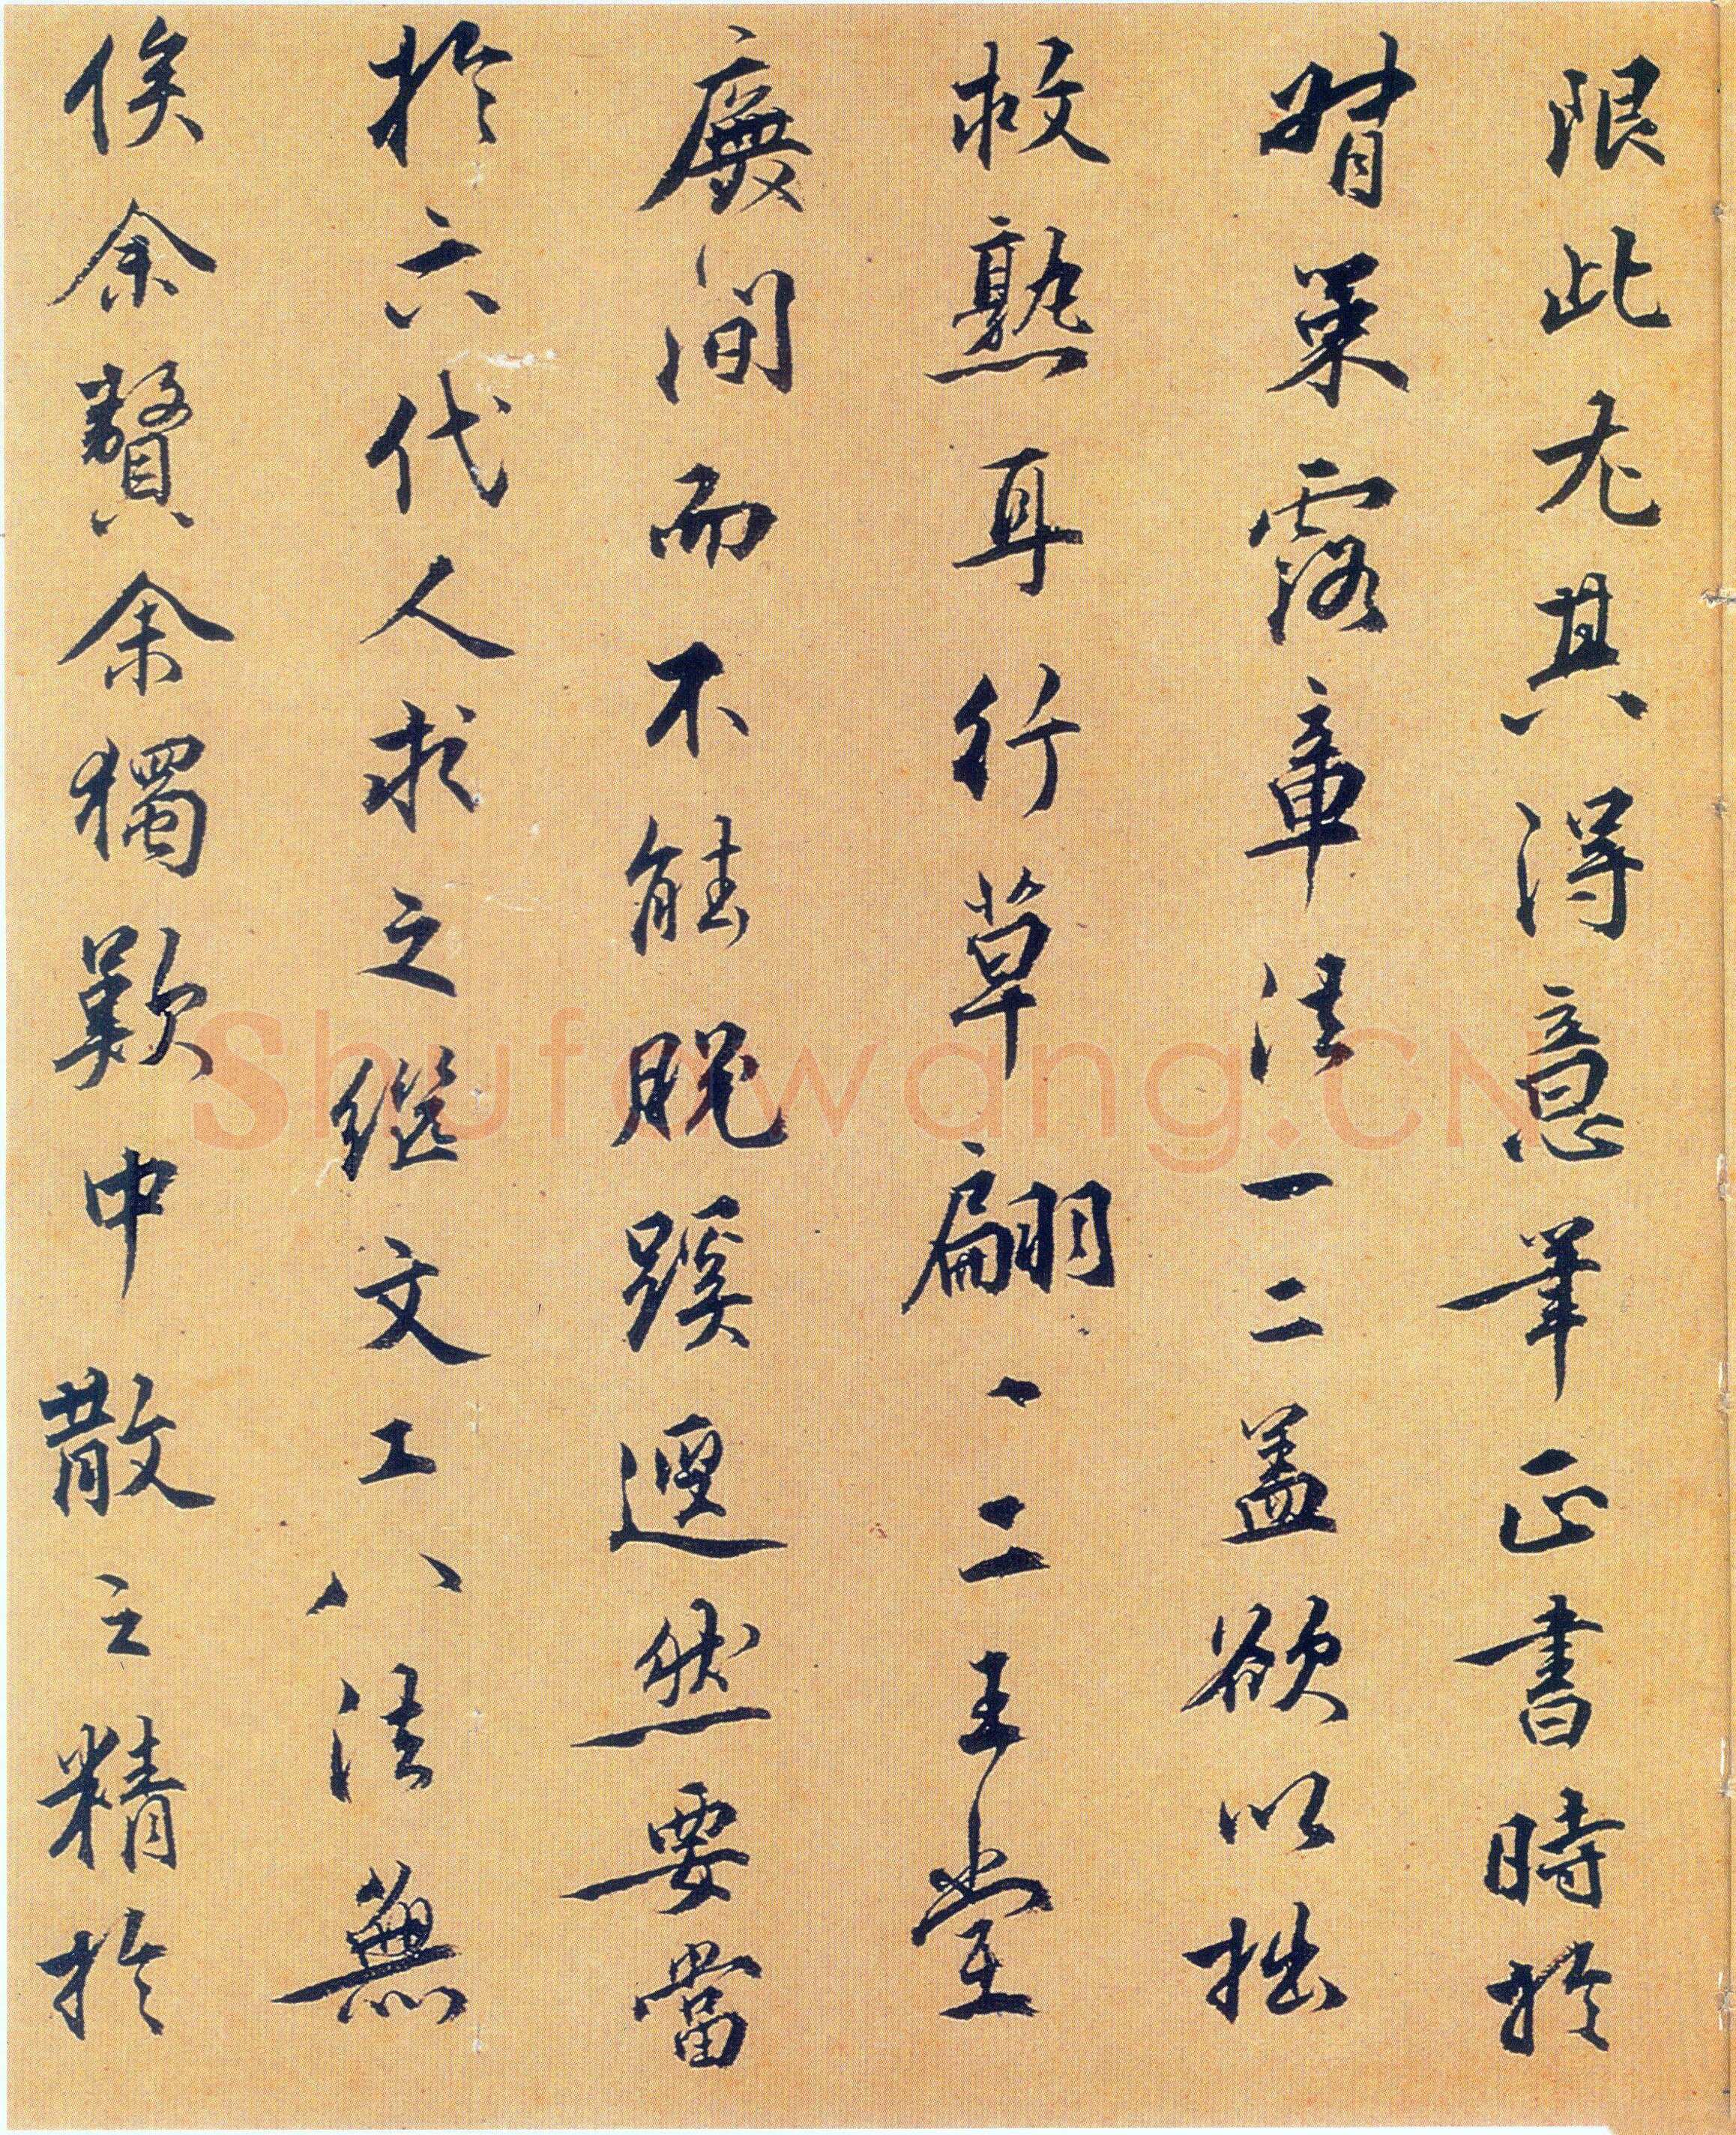 限此尤其得意筆正書時於
督策露章法一二蓋欲以拙
救熟耳行草翩、二王堂
廡間而不能脫蹊逕然要當
於六代人求之繼文工八法無
俟余贊余獨歎中散之精於
Shufawang.CN